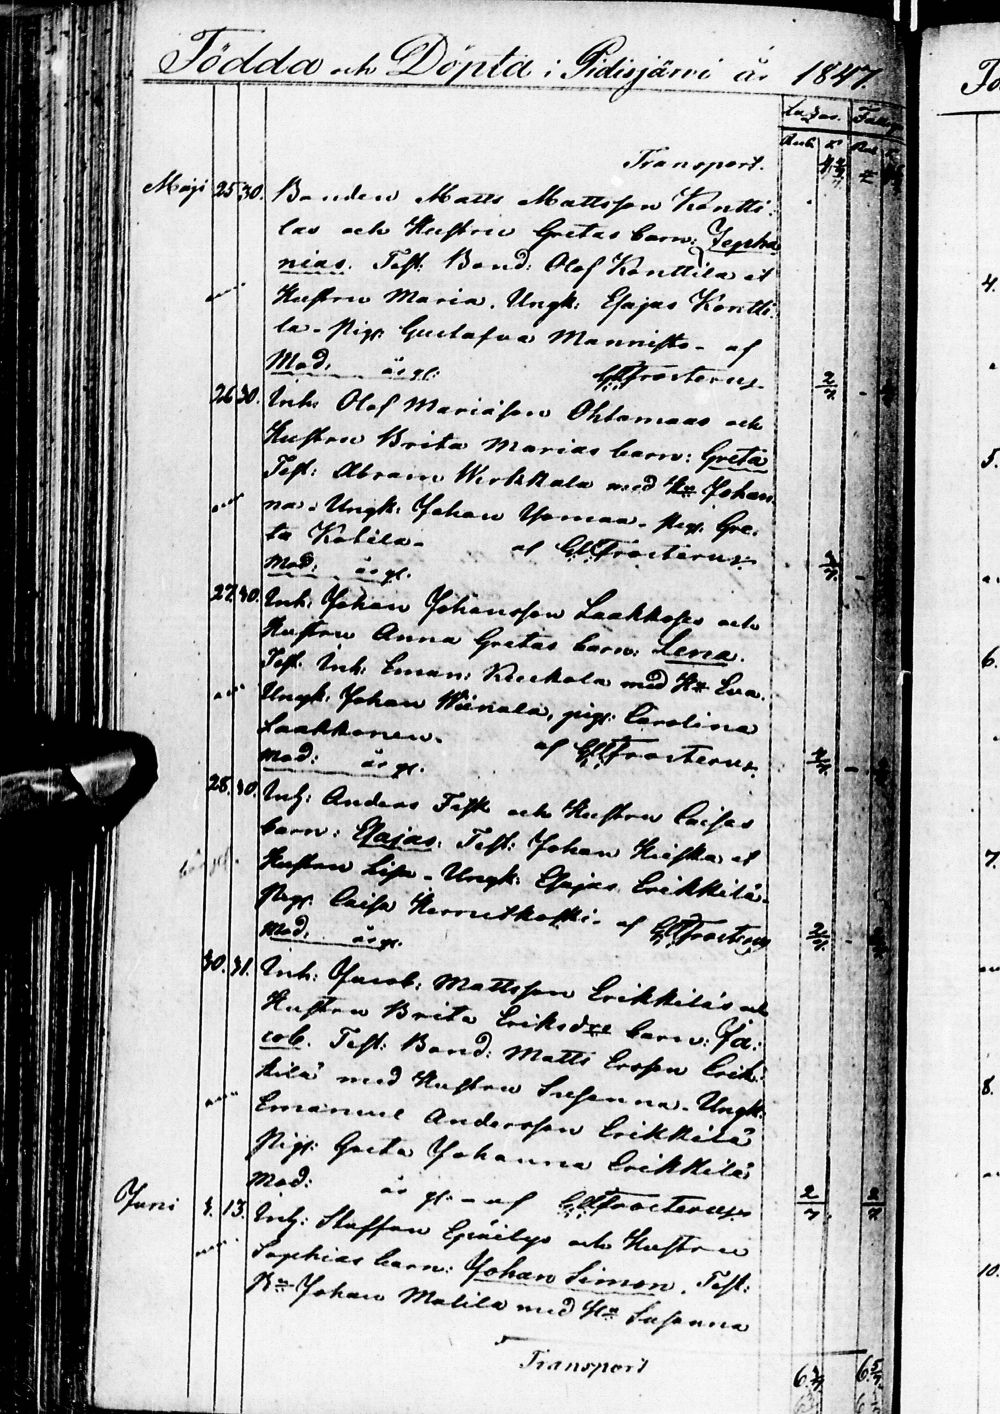 Födda och Döpta i Pidisjärvi år 1847.
Transport.
Maji 25 30. Bonden Matts Mattsson Kontti-
las och Hustru Gretas barn: Zepha
nias. Test: Bond: Olof Konttila et
Hustru Maria. Ungk: Esajas Kontti-
la. Pig: Gustafva Mannisto - af
Mod: år gl: Frosterus
26 30. Inh: Olof Mariäson Ohtamaas och
Hustru Brita Marias barn: Greta
Test: Abram Werkkala med H:u Johan
na. Ungk: Johan Yomaa. Pig: Gre-
ta Kotila. af Frosterus
Mod: år gl.
27 30. Inh: Johan Johansson Laakkoses och
Hustru Anna Gretas barn: Lena.
Test: Inh: Eman: Kuckola med H:u Eva.
Ungk: Johan Wiinala, pig: Carolina
Laakkonen. af Frosterus
Mod: år gl.
28. 30. Inh: Anders Test och Hustru Caisas
barn: Esajas. Test: Johan Kieska et
Hustru Lisa. Ungk: Esajas Erikkilä.
Pig: Caisa af Frosterus
Mod: år gl.
30. 31. Inh: Jacob Mattsson Erikkiläs och
Hustru Brita Eriksd:r barn: Ja:
cob. Test: Bond: Matts Ersson Erik-
kilä med Hustru Susanna. Ungk:
Emanuel Andersson Erikkilä
Pig: Greta Johanna Erikkilä
Mod: år gl: - af Frosterus
Juni 13. Inh: Staffan och Hustru
Sophias barn: Johan Simon. Test:
B:n Johan Malila med H:u Susanna
Transport